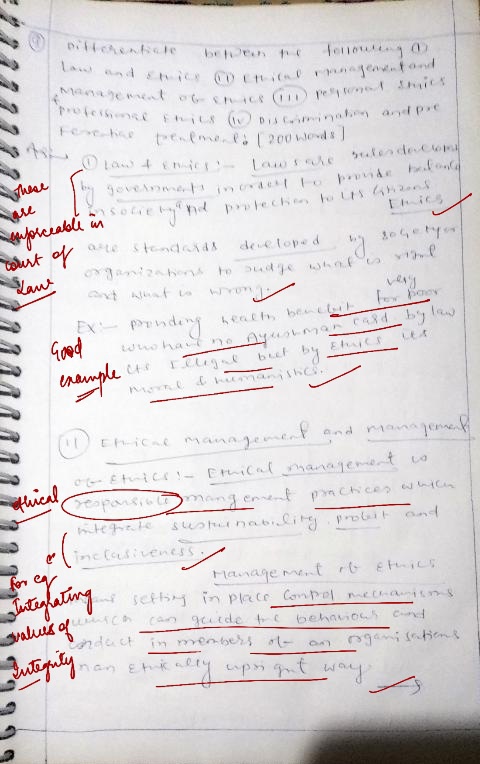 Differentiate between the following (I)
Law and Ethics (II) Ethical management and
Management of Ethics (III) Personal Ethics
& professional Ethics (IV) Discrimination and pre
ferential [200 words]
Ans:
(I) Law & Ethics:- Laws are rules developed
by governments in order to provide balance
in society and protection to its citizens.
Ethics
are standards developed by society or
organizations to judge what is right
and what is wrong.
These
are
enforceable in
court of
Law
Ex:- providing health benefit for very poor
who have no Ayushman card by law
its illegal but by Ethics its
moral & humanistic.
Good
example
(II) Ethical management and management
of Ethics:- Ethical management is
responsible mangement practices which
integrate sustainability, profit and
inclusiveness.
ethical
Management of Ethics
means setting in place control mechanisms
which can guide the behaviour and
conduct in members of an organisations
in an Ethically upright way
for eg
Integrating
values of
Integrity